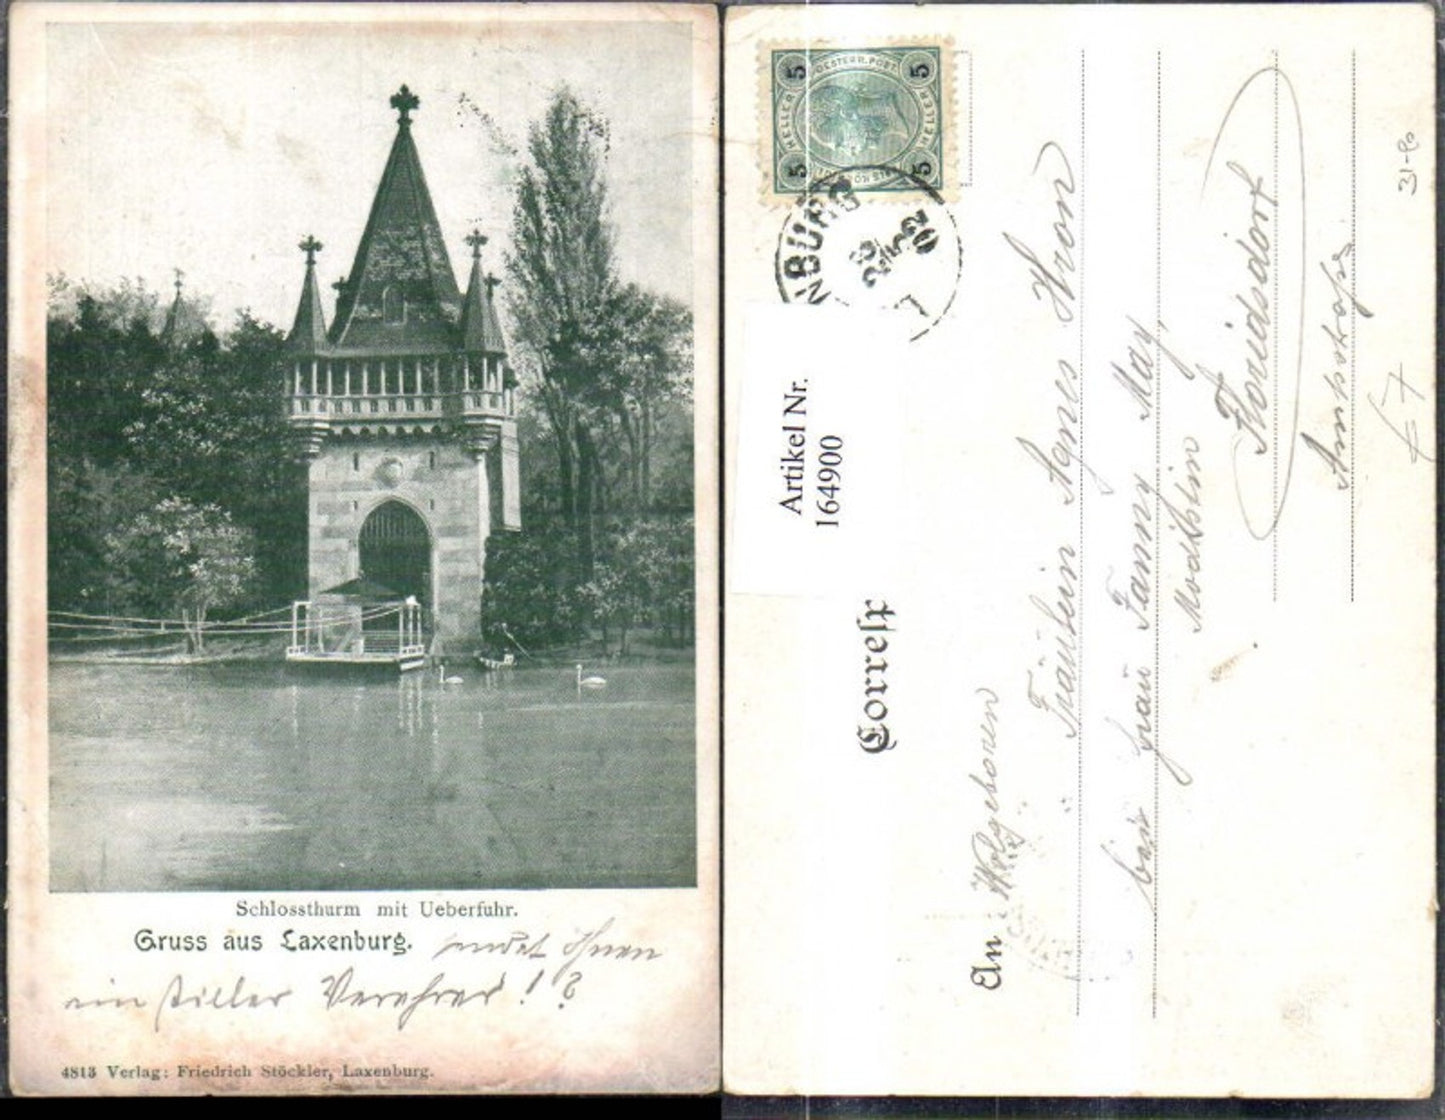 Schlossthurm mit Ueberfuhr.
Gruss aus Laxenburg. sendet Ihnen
ein stiller Verehrer! ?
4813 Verlag: Friedrich Stöckler, Laxenburg.
5 OESTERR. POST. 5
HELLER HELLER
5 5
NBURG
Artikel Nr.
164900
Corresp
An Wolgeboren
Fräulein Agnes Hron
bei Frau Fanny May,
Modistin
Floridsdorf
31-90
67